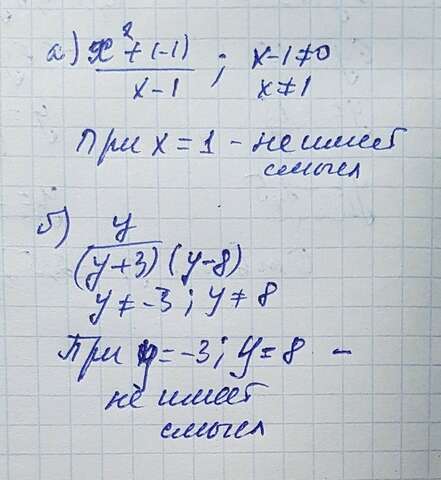 а) x² + (-1) / x - 1 ; x - 1 ≠ 0
x ≠ 1
При x = 1 - не имеет
смысл
б) y / (y+3) (y-8)
y ≠ -3 ; y ≠ 8
При y = -3 ; y = 8 -
не имеет
смысл